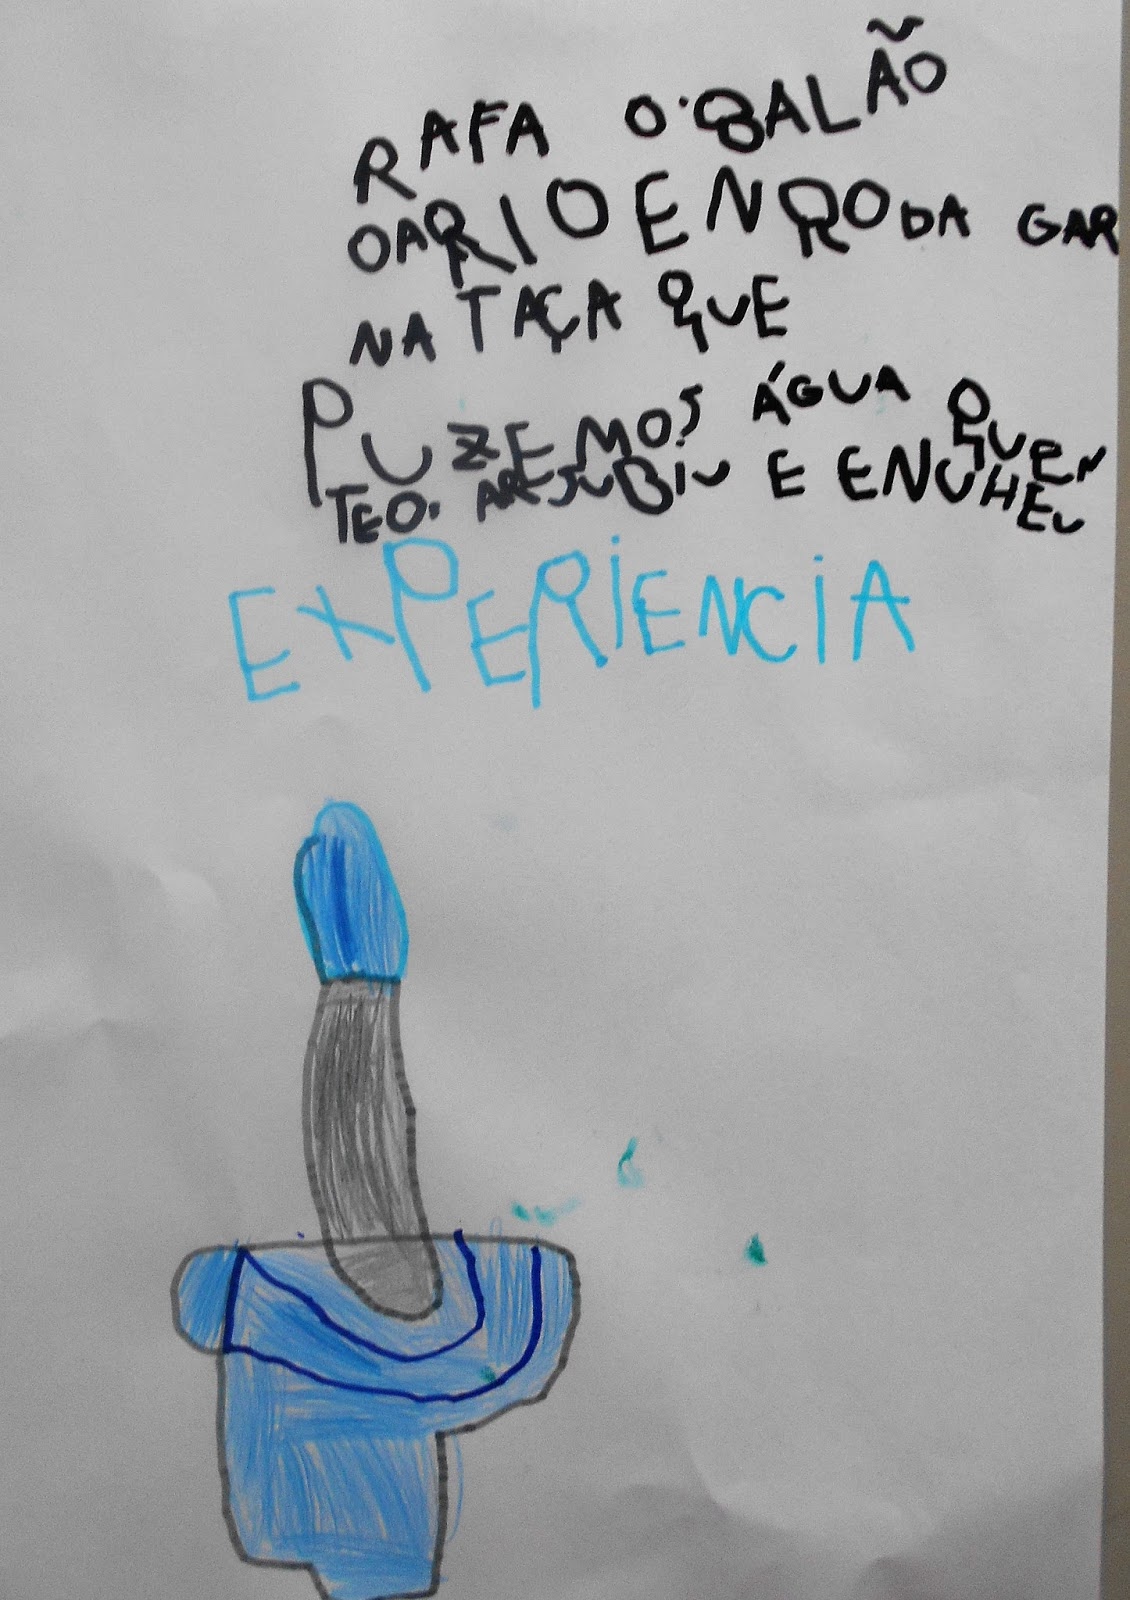 RAFA O BALÃO
OARIOENRODA GAR
NA TAÇA QUE
PUZEMOS ÁGUA QUEN
TEO. ARESUBIU E ENUHEU
EXPERIENCIA